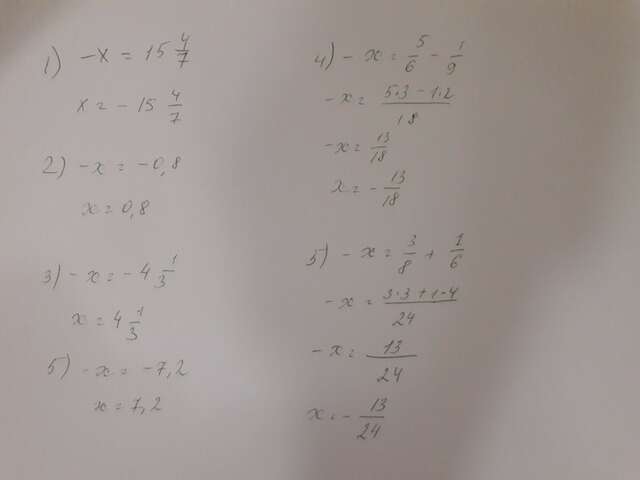 1) -x = 15 4/7
x = - 15 4/7
2) -x = -0,8
x = 0,8
3) -x = -4 1/3
x = 4 1/3
5) -x = -7,2
x = 7,2
4) - x = 5/6 - 1/9
-x = 5·3 - 1·2/18
-x = 13/18
x = - 13/18
5) - x = 3/8 + 1/6
-x = 3·3 + 1·4/24
-x = 13/24
x = - 13/24